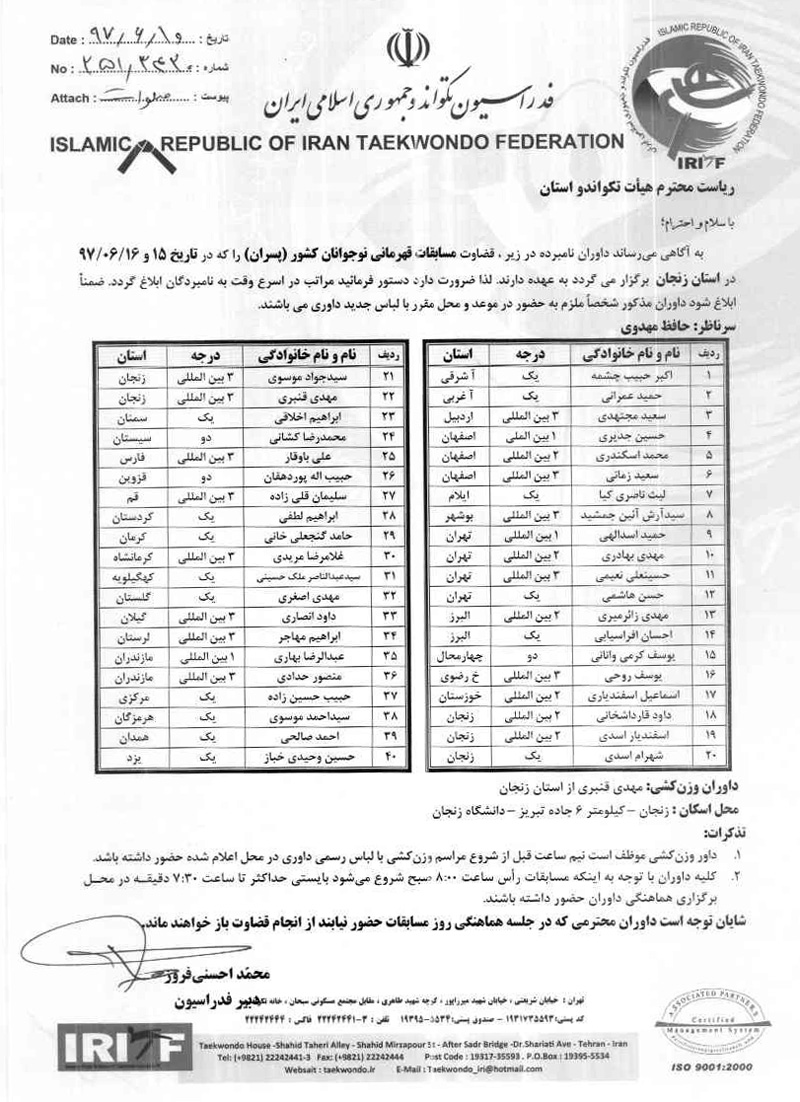 Date : ۹۷/۶/۱۰ تاریخ :
No : ۲۵۱/۲۴۲۰۰ شماره :
Attach : پیوست :
فدراسیون تکواندو جمهوری اسلامی ایران
ISLAMIC REPUBLIC OF IRAN TAEKWONDO FEDERATION
ISLAMIC REPUBLIC OF IRAN TAEKWONDO FEDERATION
فدراسیون تکواندو جمهوری اسلامی ایران
IRITF
ریاست محترم هیأت تکواندو استان
با سلام و احترام؛
به آگاهی می‌رساند داوران نامبرده در زیر ، قضاوت مسابقات قهرمانی نوجوانان کشور (پسران) را که در تاریخ ۱۵ و ۹۷/۰۶/۱۶
در استان زنجان برگزار می گردد به عهده دارند. لذا ضرورت دارد دستور فرمائید مراتب در اسرع وقت به نامبردگان ابلاغ گردد. ضمناً
ابلاغ شود داوران مذکور شخصاً ملزم به حضور در موعد و محل مقرر با لباس جدید داوری می باشند.
سرناظر: حافظ مهدوی
ردیف نام و نام خانوادگی درجه استان
۱ اکبر حبیب چشمه یک آ شرقی
۲ حمید عمرانی یک آ غربی
۳ سعید مجتهدی ۳ بین المللی اردبیل
۴ حسین جدیری ۱ بین الملی اصفهان
۵ محمد اسکندری ۲ بین المللی اصفهان
۶ سعید زمانی ۳ بین المللی اصفهان
۷ لیث ناصری کیا یک ایلام
۸ سیدآرش آئین جمشید ۳ بین المللی بوشهر
۹ حمید اسدالهی ۱ بین المللی تهران
۱۰ مهدی بهادری ۲ بین المللی تهران
۱۱ حسینعلی نعیمی ۳ بین المللی تهران
۱۲ حسن هاشمی یک تهران
۱۳ مهدی زائرمیری ۲ بین المللی البرز
۱۴ احسان افراسیابی یک البرز
۱۵ یوسف کرمی وانانی دو چهارمحال
۱۶ یوسف روحی ۳ بین المللی خ رضوی
۱۷ اسماعیل اسفندیاری ۲ بین المللی خوزستان
۱۸ داود قارداشخانی ۲ بین المللی زنجان
۱۹ اسفندیار اسدی ۲ بین المللی زنجان
۲۰ شهرام اسدی یک زنجان
ردیف نام و نام خانوادگی درجه استان
۲۱ سیدجواد موسوی ۳ بین المللی زنجان
۲۲ مهدی قنبری ۳ بین المللی زنجان
۲۳ ابراهیم اخلاقی یک سمنان
۲۴ محمدرضا کشانی دو سیستان
۲۵ علی باوقار ۳ بین المللی فارس
۲۶ حبیب اله پوردهقان دو قزوین
۲۷ سلیمان قلی زاده ۳ بین المللی قم
۲۸ ابراهیم لطفی یک کردستان
۲۹ حامد گنجعلی خانی یک کرمان
۳۰ غلامرضا مریدی ۳ بین المللی کرمانشاه
۳۱ سیدعبدالناصر ملک حسینی یک کهگیلویه
۳۲ مهدی اصغری یک گلستان
۳۳ داود انصاری ۳ بین المللی گیلان
۳۴ ابراهیم مهاجر ۳ بین المللی لرستان
۳۵ عبدالرضا بهاری ۱ بین المللی مازندران
۳۶ منصور حدادی ۳ بین المللی مازندران
۳۷ حبیب حسین زاده یک مرکزی
۳۸ سیداحمد موسوی یک هرمزگان
۳۹ احمد صالحی یک همدان
۴۰ حسین وحیدی خباز یک یزد
داوران وزن‌کشی: مهدی قنبری از استان زنجان
محل اسکان : زنجان – کیلومتر ۶ جاده تبریز – دانشگاه زنجان
تذکرات:
۱. داور وزن‌کشی موظف است نیم ساعت قبل از شروع مراسم وزن‌کشی با لباس رسمی داوری در محل اعلام شده حضور داشته باشد.
۲. کلیه داوران با توجه به اینکه مسابقات رأس ساعت ۸:۰۰ صبح شروع می‌شود بایستی حداکثر تا ساعت ۷:۳۰ دقیقه در محل
برگزاری هماهنگی داوران حضور داشته باشند.
شایان توجه است داوران محترمی که در جلسه هماهنگی روز مسابقات حضور نیابند از انجام قضاوت باز خواهند ماند.
محمّد احسنی‌فروز
دبیر فدراسیون
تهران : خیابان شریعتی ، خیابان شهید میرزاپور ، کوچه شهید طاهری ، مقابل مجتمع مسکونی سبحان ، خانه
کد پستی: ۱۹۳۱۷۳۵۵۹۳ – صندوق پستی: ۵۵۳۴–۱۹۳۹۵ تلفن : ۳–۲۲۲۴۲۴۴۱ فاکس : ۲۲۲۴۲۴۴۴
IRITF
Taekwondo House -Shahid Taheri Alley - Shahid Mirzapour St - After Sadr Bridge -Dr.Shariati Ave - Tehran - Iran
Tel: (+9821) 22242441-3 Fax: (+9821) 22242444 Post Code : 19317-35593 . P.O.Box : 19395-5534
Websait : taekwondo.ir E-Mail : Taekwondo_iri@hotmail.com
ASSOCIATED PARTNERS
Certified
Management System
ISO 9001:2000